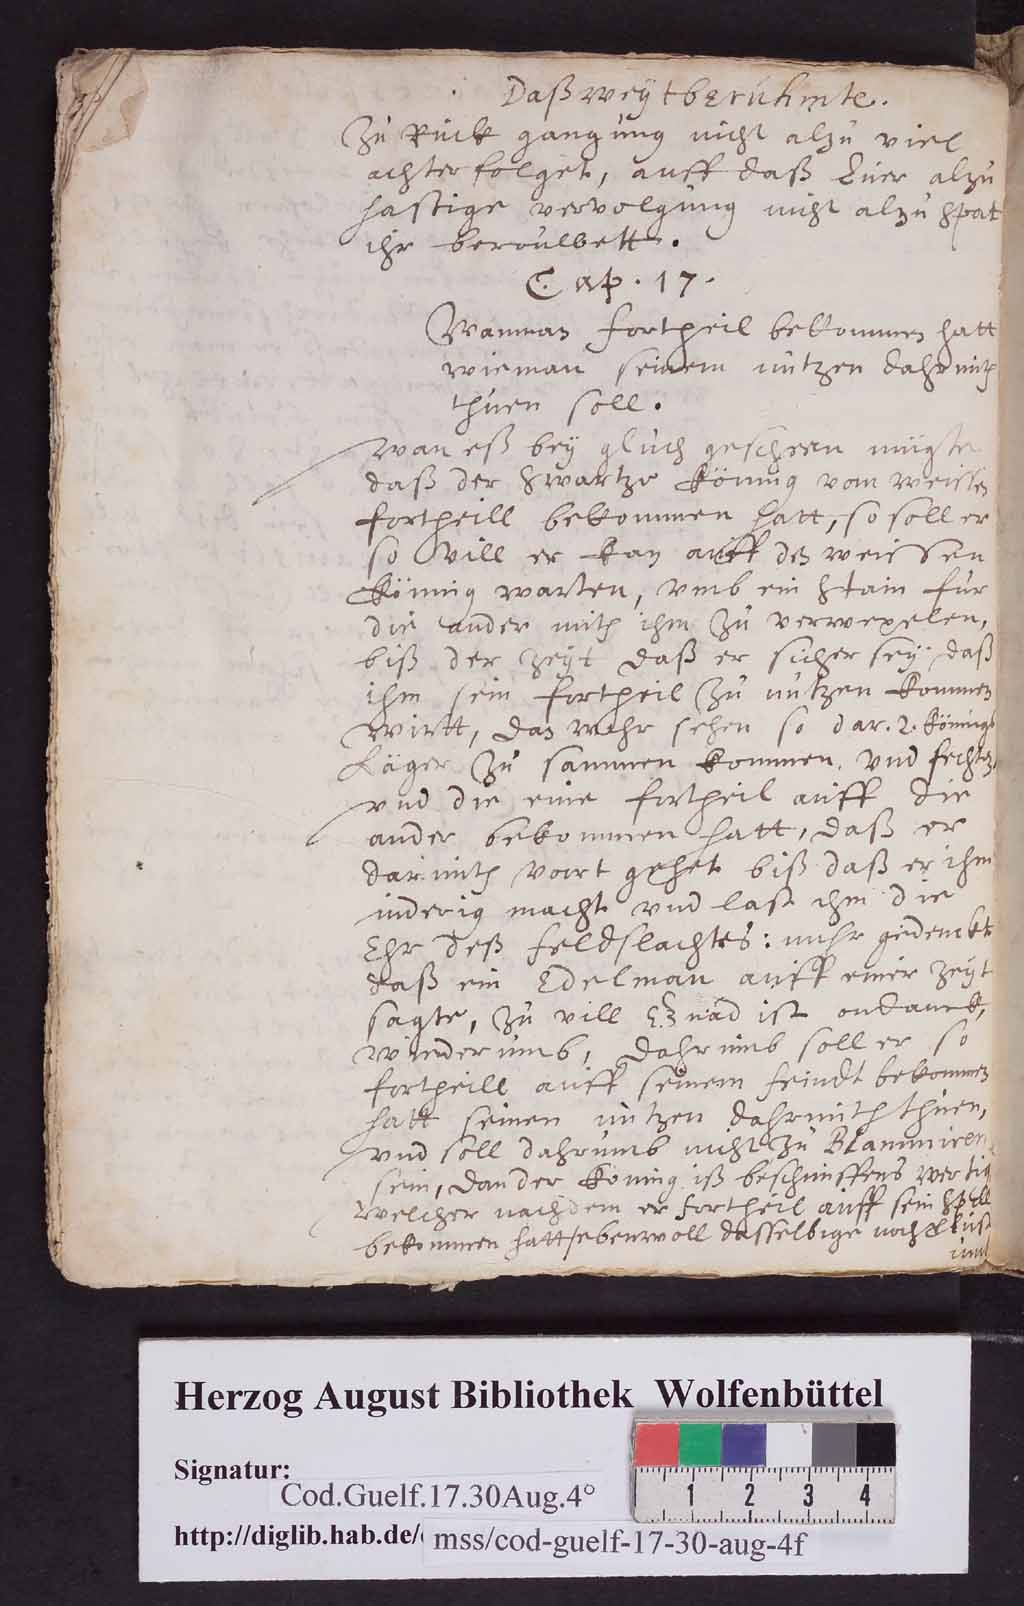 Daß weÿtberühmte.
Zu Rück gangung nicht alzu viel
achterfolget, auff daß Euer alzu
hastige vervolgung nicht alzu spat
ihr beroulbett.
Cap. 17.
Wanman fortheil bekommen hatt
wieman seinem nutzen dahrmith
thuen soll.
Wan eß beÿ gluch gescheen mügte
daß der swartze Könnig vom weissen
fortheill bekommen hatt, so soll er
so vill er kan auff den weissen
Könnig warten, vmb ein stain für
die ander mith ihm zu verwexelen,
biß der zeÿt daß er sicher seÿ daß
ihm sein fortheil zu nutzen kommen
wirtt, dan wihr sehen so dar. 2. Könings
Läger zu sammen kommen, vnd fechten,
vnd die eine fortheil auff die
ander bekommen hatt, daß er
darmith vort gehet biß daß er ihm
inderig macht vnd last ihm die
Ehr deß feldslachtes: mihr gedenckt
daß ein Edelman auff einer zeÿt
sagte, zu vill Gnad ist ondanck,
winderumb, dahrumb soll er so
fortheill auff seinem feindt bekommen
hatt seinen nutzen dahrmith thuen,
vnd soll dahrumb nicht zu Blammieren
sein, dan der Köning iß beschimffens wertig
welcher nachdem er fortheil auff sein spell
bekommen hatt, ebenwoll dasselbige noch
Herzog August Bibliothek Wolfenbüttel
Signatur:
Cod.Guelf.17.30Aug.4°
http://diglib.hab.de/ mss/cod-guelf-17-30-aug-4f
1 2 3 4